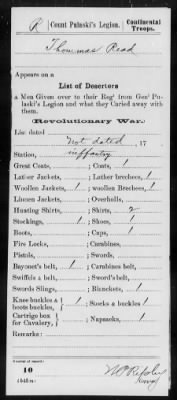 R | Count Pulaski's Legion. | Continental Troops.
Thommas Read
Appears on a
List of Deserters
a Men Given over to their Regt from Genl Pulaski's Legion and what they Caried away with them.
Revolutionary War.
List dated Not dated, 17
Station, inffantry
Great Coats, ; Coats, 1
Lather Jackets, ; Lather breeches, 1
Woollen Jackets, 1 ; woollen Breeches, 1
Linnen Jackets, ; Overhalls,
Hunting Shirts, ; Shirts, 2
Stockings, 1 ; Shoes, 1
Boots, ; Caps, 1
Fire Locks, ; Carabines,
Pistols, ; Swords,
Bayonet's belt, 1 ; Carabines belt,
Swiffels a belt, ; Sword's belt,
Swords Slings, ; Blanckets, 1
Knee buckles a boots buckles, 1 ; Stocks a buckles 1
Cartrigo box for Cavalery, 1 ; Napsacks, 1
Remarks:
(number of record)
10
(545m)
Copyist.